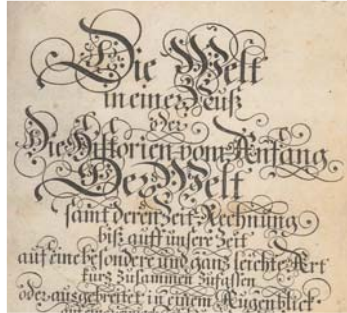 Die Welt
in einer Nuß
oder
Die Historien vom Anfang
Der Welt
samt deren Zeit-Rechnung
biß auff unsere Zeit
auf eine besondere und ganz leichte Art
kurz zusammen zufassen
oder ausgebreitet in einem Augenblick